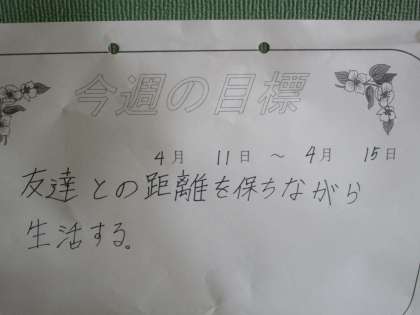 今週の目標
4月 11日 ~ 4月 15日
友達との距離を保ちながら
生活する。